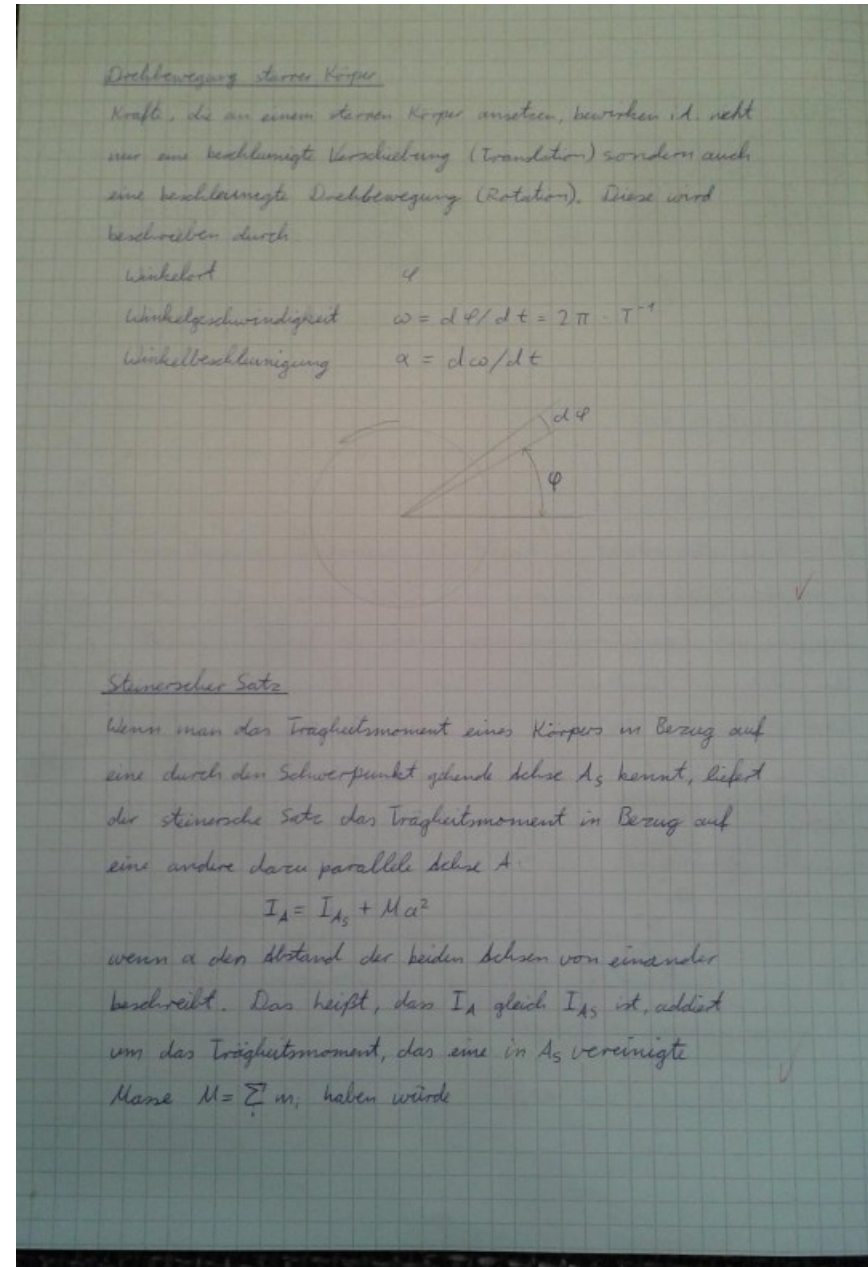 Drehbewegung starrer Körper
Kräfte, die an einem starren Körper ansetzen, bewirken i.A. nicht
nur eine beschleunigte Verschiebung (Translation) sondern auch
eine beschleunigte Drehbewegung (Rotation). Diese wird
beschrieben durch
Winkelort φ
Winkelgeschwindigkeit ω = dφ/dt = 2π · T⁻¹
Winkelbeschleunigung α = dω/dt
dφ
φ
Steinerscher Satz
Wenn man das Trägheitsmoment eines Körpers in Bezug auf
eine durch den Schwerpunkt gehende Achse A_S kennt, liefert
der steinersche Satz das Trägheitsmoment in Bezug auf
eine andere dazu parallele Achse A.
I_A = I_{A_S} + Ma²
wenn a den Abstand der beiden Achsen von einander
beschreibt. Das heißt, dass I_A gleich I_{AS} ist, addiert
um das Trägheitsmoment, das eine in A_S vereinigte
Masse M = Σ_i m_i haben würde